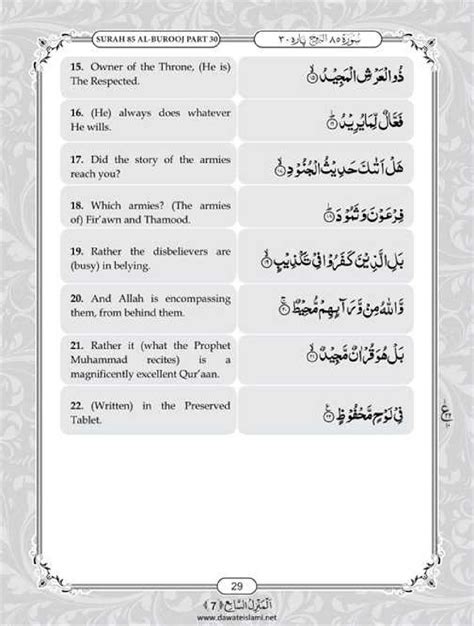 SURAH 85 AL-BUROOJ PART 30
سُوْرَةُ ٨٥ الْبُرُوْج پاره ٣٠
15. Owner of the Throne, (He is)
The Respected.
ذُو الْعَرْشِ الْمَجِیْدُ ۙ﴿۱۵﴾
16. (He) always does whatever
He wills.
فَعَّالٌ لِّمَا یُرِیْدُ ؕ﴿۱۶﴾
17. Did the story of the armies
reach you?
هَلْ اَتٰىكَ حَدِیْثُ الْجُنُوْدِ ۙ﴿۱۷﴾
18. Which armies? (The armies
of) Fir’awn and Thamood.
فِرْعَوْنَ وَ ثَمُوْدَ ؕ﴿۱۸﴾
19. Rather the disbelievers are
(busy) in belying.
بَلِ الَّذِیْنَ كَفَرُوْا فِیْ تَكْذِیْبٍ ۙ﴿۱۹﴾
20. And Allah is encompassing
them, from behind them.
وَّ اللّٰهُ مِنْ وَّرَآىِٕهِمْ مُّحِیْطٌ ۚ﴿۲۰﴾
21. Rather it (what the Prophet
Muhammad recites) is a
magnificently excellent Qur’aan.
بَلْ هُوَ قُرْاٰنٌ مَّجِیْدٌ ۙ﴿۲۱﴾
22. (Written) in the Preserved
Tablet.
فِیْ لَوْحٍ مَّحْفُوْظٍ ﴿۲۲﴾
29
اَلْمَنْزِلُ السَّابِع ﴿7﴾
www.dawateislami.net